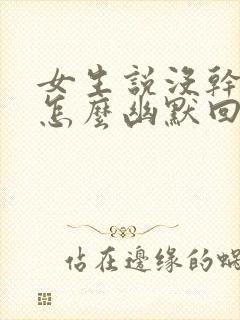 女生説沒幹
怎麼幽默回
佔在邊缘的蝸